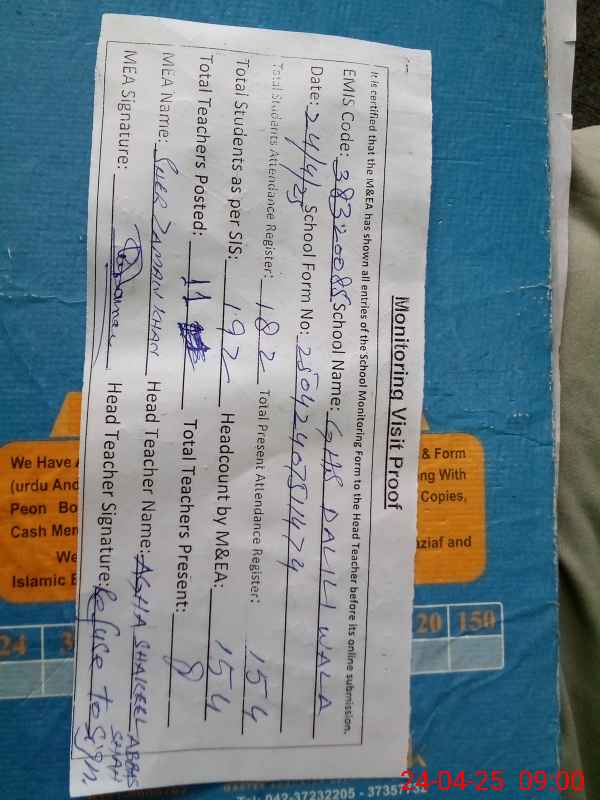 Monitoring Visit Proof
It is certified that the M&EA has shown all entries of the School Monitoring Form to the Head Teacher before its online submission.
EMIS Code: 38320085 School Name: GHS DALILI WALA
Date: 24/4/25 School Form No: 25042407511474
Total Students Attendance Register: 182 Total Present Attendance Register: 154
Total Students as per SIS: 192 Headcount by M&EA: 154
Total Teachers Posted: 11 Total Teachers Present: 8
MEA Name: SHER ZAMAN KHAN Head Teacher Name: AGHA SHAKEEL ABBAS SHAH
MEA Signature: Head Teacher Signature: Refuse to Sign.
We Have
(urdu And
Peon Bo
Cash Mem
We
Islamic
& Form
ng With
Copies,
aziaf and
24
20 150
Tel: 042-37232205 - 37357
24-04-25 09:00